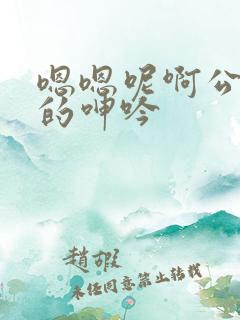 嗯嗯呢啊公
的呻吟
趙嘏
未经同意禁止转载